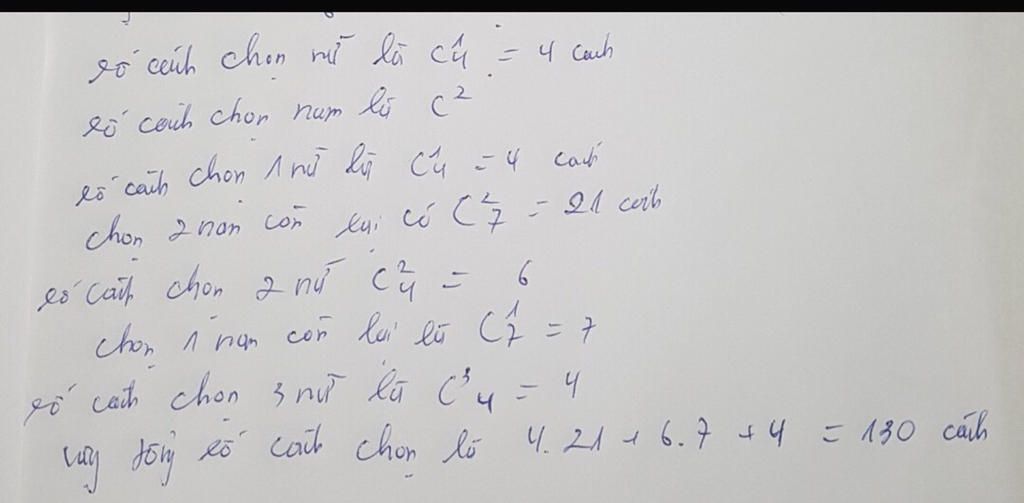 số cách chọn nữ là C¹₄ = 4 cách
số cách chọn nam là C²
số cách chọn 1 nữ là C¹₄ = 4 cách
chọn 2 nam còn lại có C²₇ = 21 cách
số cách chọn 2 nữ C²₄ = 6
chọn 1 nam còn lại là C¹₇ = 7
số cách chọn 3 nữ là C³₄ = 4
vậy tổng số cách chọn là 4.21 + 6.7 + 4 = 130 cách